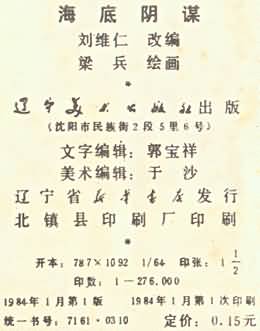 海底阴谋
刘维仁 改编
梁兵 绘画
*
辽宁美术出版社出版
(沈阳市民族街2段5里6号)
文字编辑：郭宝祥
美术编辑：于 沙
辽宁省新华书店发行
北镇县印刷厂印刷
*
开本：787×1092 1/64 印张：1 1/2
印数：1—276.000
1984年1月第1版 1984年1月第1次印刷
统一书号：7161·0310 定价：0.15元